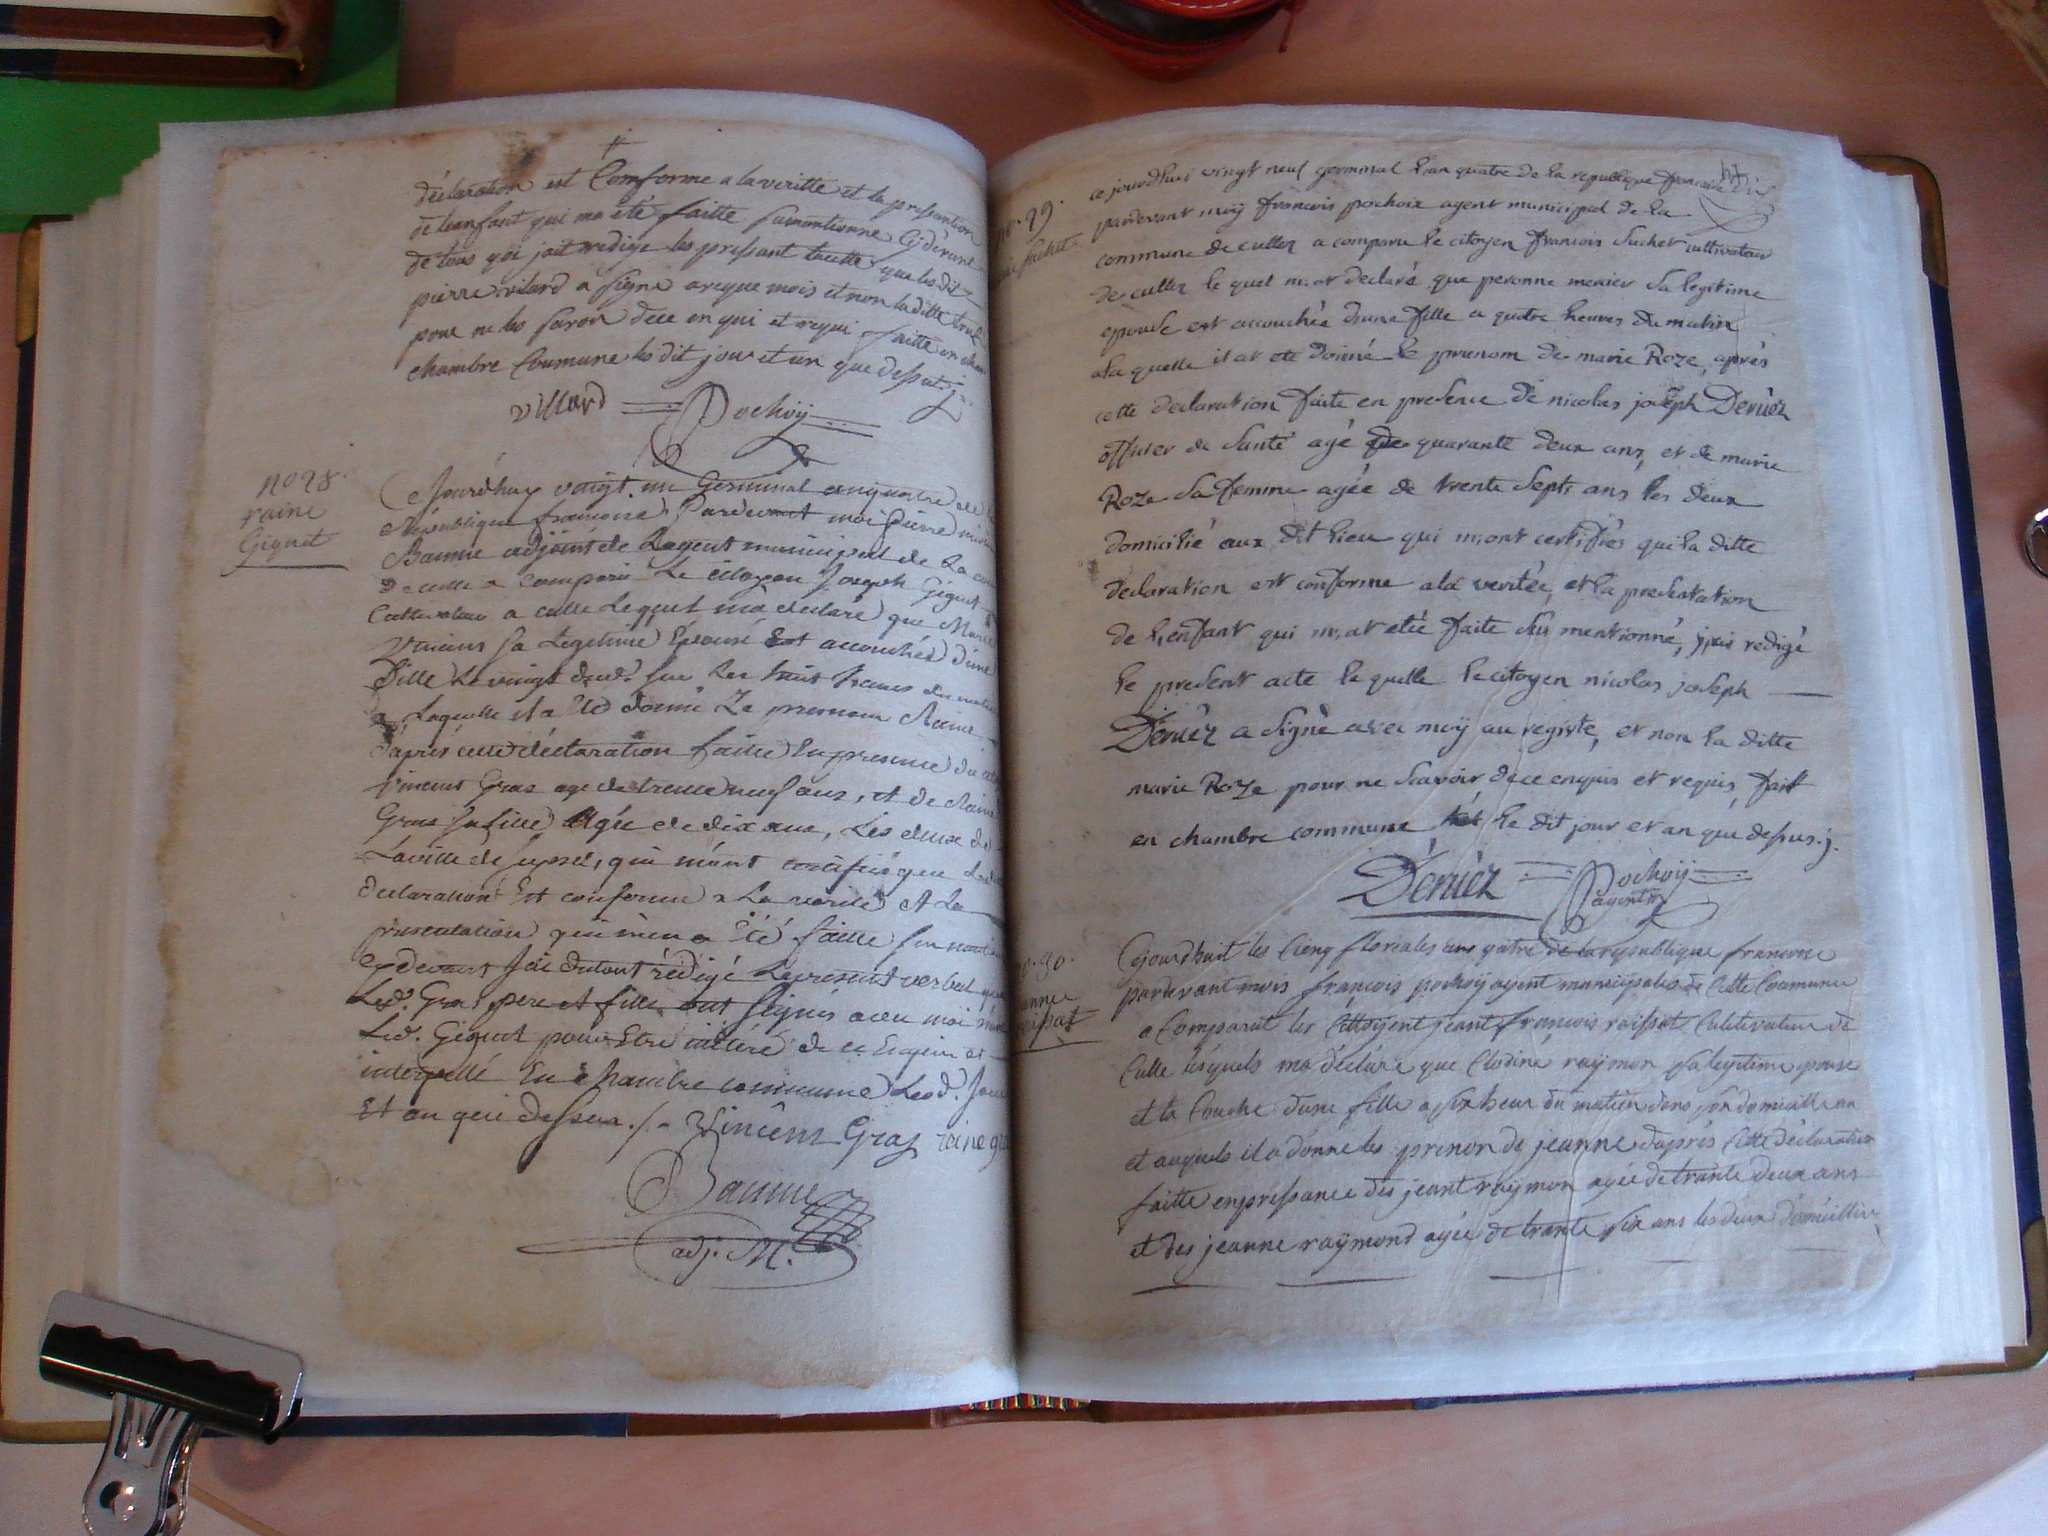 déclaration est Comforme a la veritte et la pressantion
de lenfant qui ma été faitte sumontionne Cydevant
de tous qoi jait redige les pressant lactte que les dit
pierre vilard a signe aveque mois et non la ditte
pour ne les savoir dece en qui et requi faitte en
chambre Coumune les dit jour et an que dessut j.
villard Pochoÿ
no 28.
raine
Giguet
Ce Jourd'huy vaingt un Germinal an quatre de la
République francoise Pardevant moi pierre
Baume adjoint de Lagent municipal de La
de culle a comparu Le citoyen Joseph Giguet
Cultivateur a culle Lequel m'a declaré que Marie
sa Legitime Epouse Est accouchée d'une
fille Le vingt dud. sur Les huit heures du matin
a Laquelle il a été donné Le prenom Raine
d'après cette déclaration faitte En presence du
vincent Gras age de trente neuf ans, et de Raine
Gras sa fille Agée de dix ans, Les deux de
Laville de Seyssel, qui m'ont certifié que La
declaration Est conforme a La verité et La
presentation qui m'en a été faitte
cydevant Jai dutout rédigé Le present verbal
Led. Gras pere et fille ont signés avec moi
Led. Giguet pour Etre illitéré de ce Enquis et
interpellé En chambre commune Lesd. Jour
Et an que dessus ./. Vincent Gras raine gras
Baume
adj. M.
no. 29.
ce jourdhui vingt neuf germinal lan quatre de la republique francaise
pardevant moÿ francois pochoix agent municipal de la
commune de cullez a comparu le citoyen francois suchet cultivateur
de cullez le quel m,at declaré que peronne menier sa legitime
epouse est accouchée d'une fille a quatre heures du matin
ala quelle il at eté donné le prenom de marie Roze, aprés
cette declaration faite en presence de nicolas joseph Deruèz
officier de santé agé de quarante deux ans, et de marie
Roze sa femme agée de trente sept ans les deux
domicilié aux dit lieu qui m,ont certifiés qui la ditte
declaration est conforme ala veritée, et la presentation
de l,enfant qui m,at etée faite sus mentionné, j,ais redigé
le present acte le quelle le citoyen nicolas joseph
Deruèz a signé avec moÿ au registe, et non la ditte
marie Roze pour ne scavoir de ce enquis et requis, fait
en chambre commune le dit jour et an que dessus. j.
Déruèz Pochoÿ
agent
no. 30.
jeanne
raissat
Cejourdhuit les Cienq floreales ans quatre de la republique francoise
pardevant mois francois pochoÿ agent municipales de Cette Commune
a Comparut les Cittoÿent jeant francois raissat Cultivateur de
Culle lesquels ma déclare que Clodine raÿmon sa legitime epouse
et ta Couche dune fille a six heur du matien dans son domicille au
et auquels il a donne les prenon de jeanne daprés Cette déclaration
faitte enpressance des jeant raÿmon agée de trante deux ans
et des jeanne raÿmond agée de trante six ans les deux domicillie